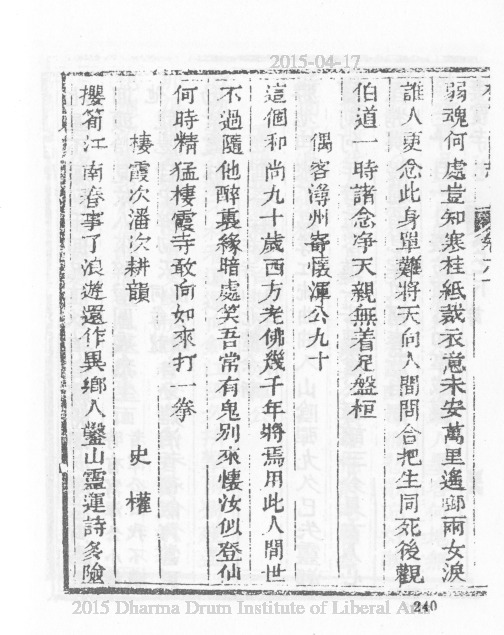 2015-04-17
弱魂何處豈知寒桂紙裁衣意未安萬里遙鄉兩女淚
誰人更念此身單難將天向人間問合把生同死後觀
伯道一時諸念淨天親無着足盤桓
偶客漳州寄懷渾公九十
這個和尚九十歲西方老佛幾千年將焉用此人間世
不過隨他醉裏緣暗處笑吾常有鬼別來懷汝似登仙
何時精猛棲霞寺敢向如來打一拳
棲霞次潘次耕韻
史權
攖筍江南春事了浪遊還作異鄉人鑿山靈運詩多險
240
2015 Dharma Drum Institute of Liberal Arts